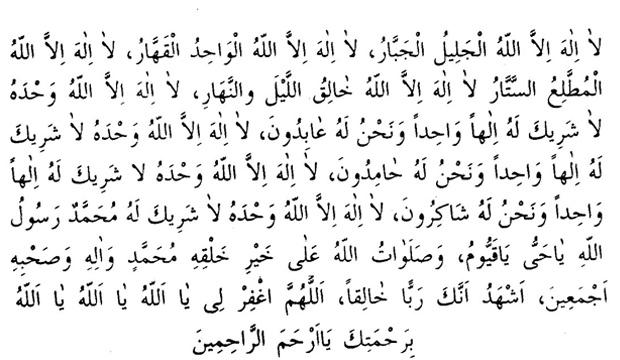 لاٰ اِلٰهَ اِلاَّ اللّٰهُ الْجَلِيلُ الْجَبَّارُ، لاٰ اِلٰهَ اِلاَّ اللّٰهُ الْوَاحِدُ الْقَهَّارُ، لاٰ اِلٰهَ اِلاَّ اللّٰهُ
الْمُطَّلِعُ السَّتَّارُ لاٰ اِلٰهَ اِلاَّ اللّٰهُ خَالِقُ اللَّيْلَ والنَّهَارِ، لاٰ اِلٰهَ اِلاَّ اللّٰهُ وَحْدَهُ
لاٰ شَرِيكَ لَهُ اِلٰهاً وَاحِداً وَنَحْنُ لَهُ عَابِدُونَ، لاٰ اِلٰهَ اِلاَّ اللّٰهُ وَحْدَهُ لاٰ شَرِيكَ
لَهُ اِلٰهاً وَاحِداً وَنَحْنُ لَهُ حَامِدُونَ، لاٰ اِلٰهَ اِلاَّ اللّٰهُ وَحْدَهُ لا شَرِيكَ لَهُ اِلٰهاً
وَاحِداً وَنَحْنُ لَهُ شَاكِرُونَ، لاٰ اِلٰهَ اِلاَّ اللّٰهُ وَحْدَهُ لاٰ شَرِيكَ لَهُ مُحَمَّدٌ رَسُولُ
اللّٰهِ يٰاحَىُّ يَاقَيُّومُ، وَصَلَوٰاتُ اللّٰهُ عَلٰى خَيْرِ خَلْقِهِ مُحَمَّدٍ وَاٰلِهِ وَصَحْبِهِ
اَجْمَعِينَ، اَشْهَدُ اَنَّكَ رَبًّا خَالِقاً، اَللّٰهُمَّ اغْفِرْ لِى يٰا اَللّٰهُ يٰا اَللّٰهُ يٰا اَللّٰهُ
بِرَحْمَتِكَ يٰااَرْحَمَ الرَّاحِمِينَ